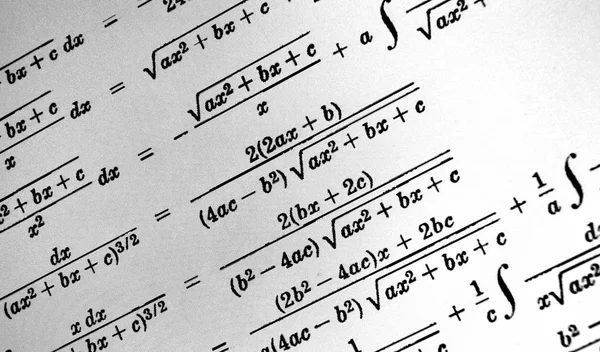 bx + c dx = 24
bx + c / x dx = √(ax² + bx + c)
x² + bx + c / x² dx = − √(ax² + bx + c) / x + a ∫ / √(ax² +
dx / (ax² + bx + c)^3/2 = 2(2ax + b) / (4ac − b²) √(ax² + bx + c)
x dx / bx + c)^3/2 = 2(bx + 2c) / (b² − 4ac) √(ax² + bx + c)
= (2b² − 4ac)x + 2bc / a(4ac − b²) √(ax² + bx + c) + 1/a ∫
1 + 1/c ∫ dx / x√(ax²
b² −